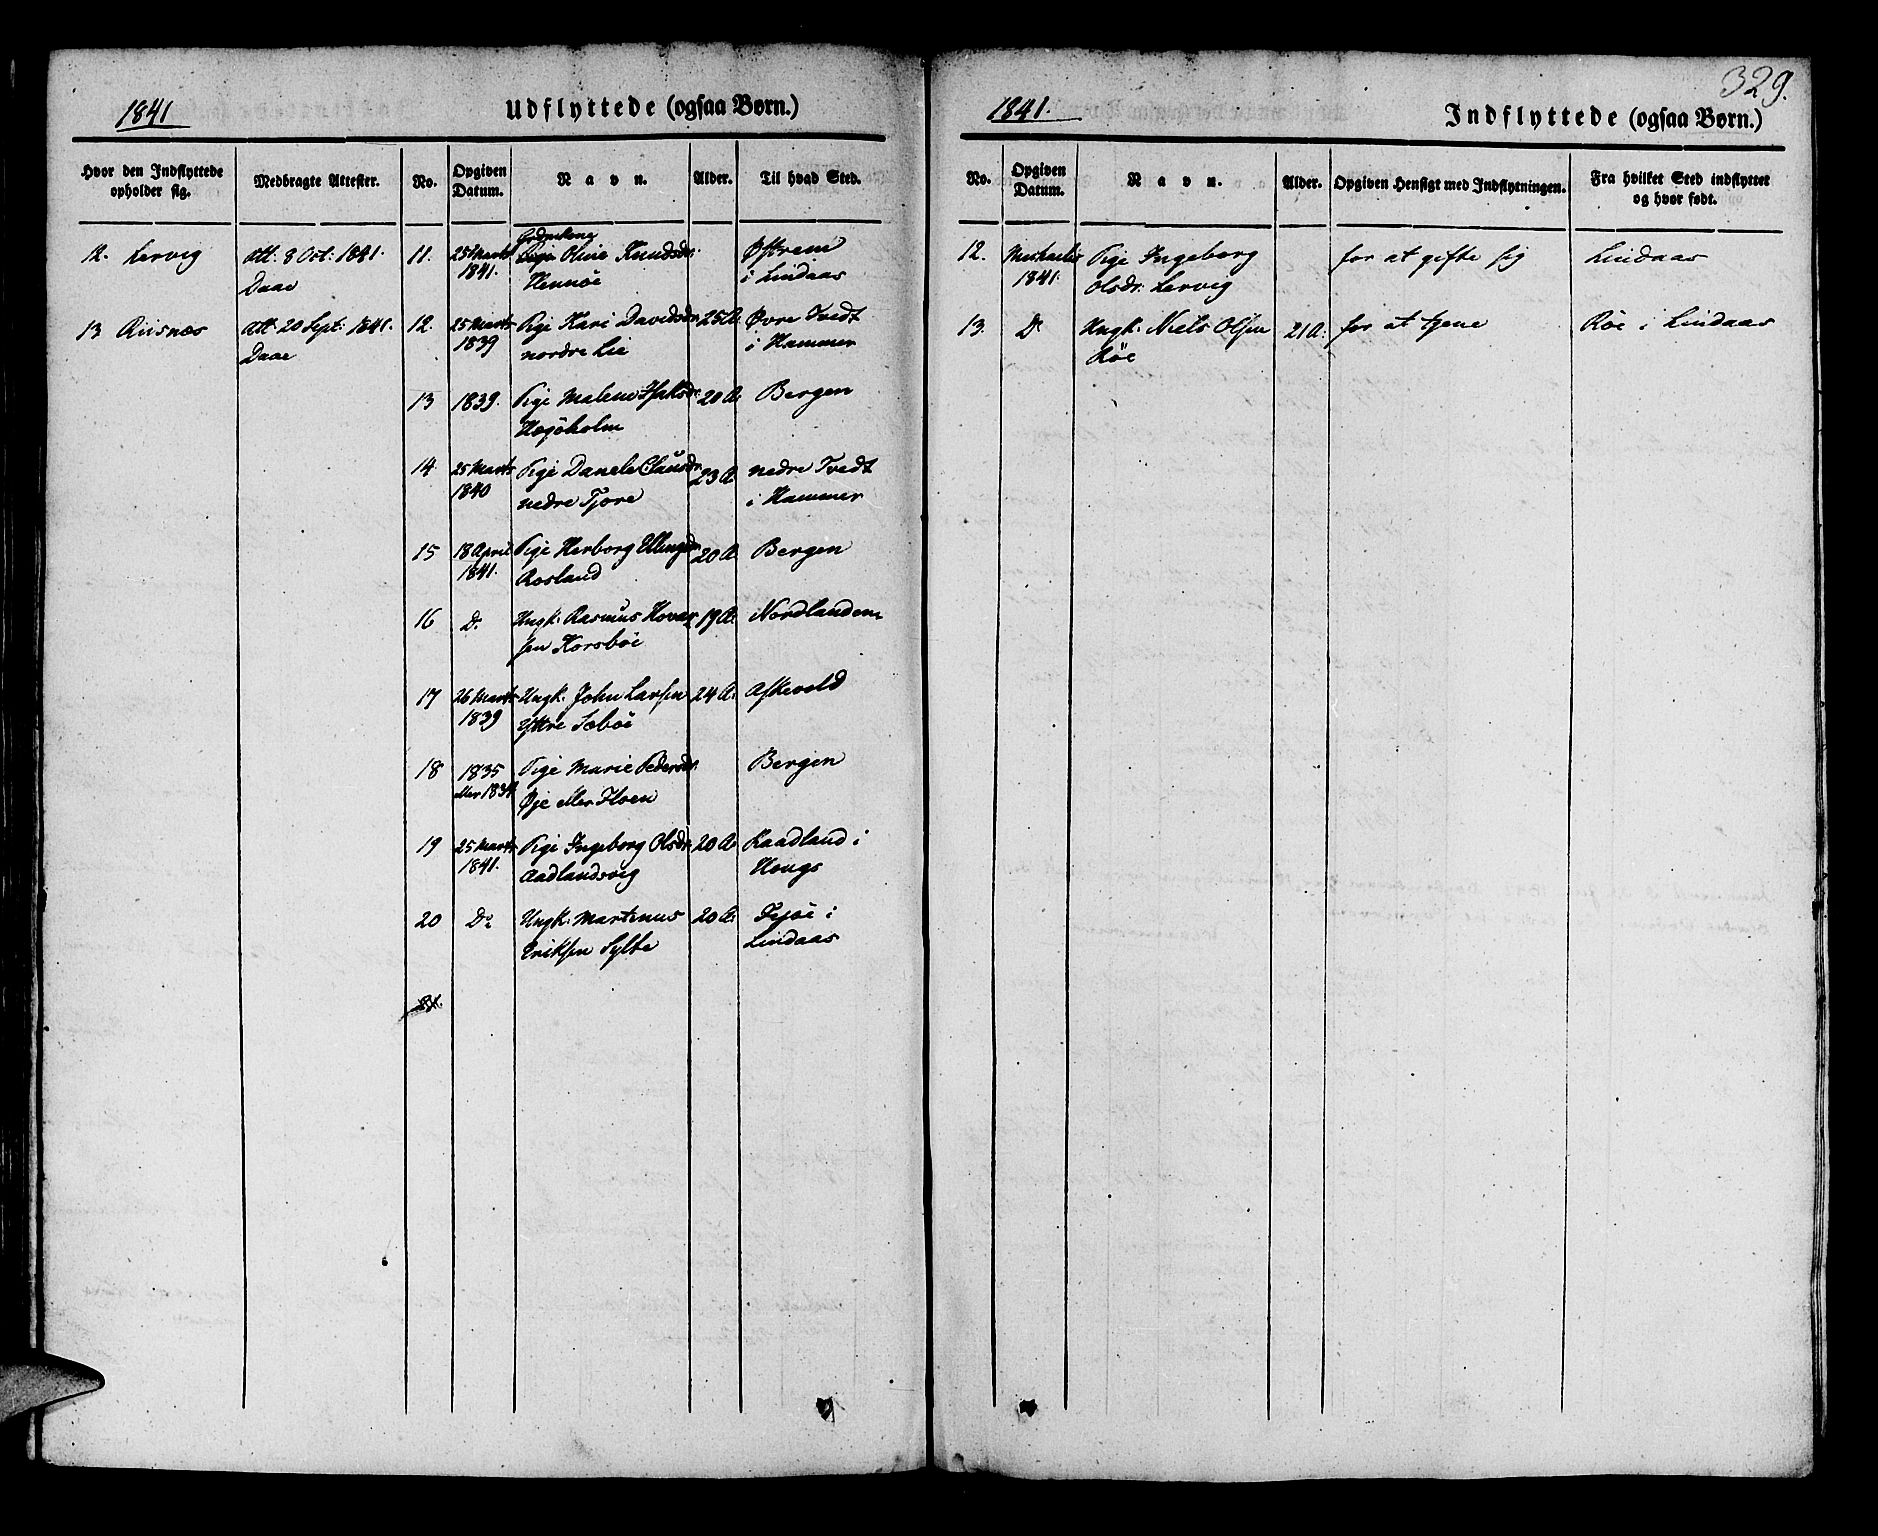 1841
Udflyttede (ogsaa Børn.)
Hvor den Indflyttede opholder sig.
Medbragte Attester.
No.
Opgiven Datum.
Navn.
Alder.
Til hvad Sted.
12. Lervig
Att: 8 Oct: 1841.
Daae
13 Risnæs
Att: 20 Sept: 1841.
Daae
11. 25 Marts Pige Olivie Knudsdr: Østrem
1841. Hennøe i Lindaas
12. 25 Marts Pige Kari Davidsdr 25 A. Øvre Tvedt
1839 nordre Lie i Hammer
13 1839. Pige Malene Isaksdr 20 A. Bergen
Høgøholm
14 25 Marts Pige Danele Clausdr 23 A nedre Tvedt
1840 nedre Tjore i Hammer
15 18 April Pige Herborg Ellingsdr 20 A. Bergen
1841. Aasland
16 Do Ungk: Rasmus Hovar 19 A. Nordlanden
sen Korsbøe
17 26 Marts Ungk: John Larsen 24 A. Askevold
1839 Yttre Sæbøe
18 1835 Pige Marie Pedersdr: Bergen
eller 1834 Øje eller Floen
19 25 Marts Pige Ingeborg Olsdr 20 A. Raadland i
1841. Aadlandsvig Hougs
20 Do Ungk: Martenus 20 A. Fejøe i
Eriksen Sylte Lindaas
21.
329.
1841.
Indflyttede (ogsaa Børn.)
No.
Opgiven Datum.
Navn.
Alder.
Opgiven Hensigt med Indflytningen.
Fra hvilket Sted indflyttet og hvor født.
12. Michaelis Pige Ingeborg for at gifte sig Lindaas
1841. Olsdr: Lervig
13. Do Ungk: Niels Olsen 21 A. for at tjene Røe i Lindaas
Røe